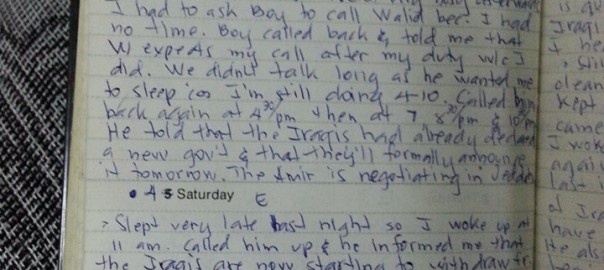 I had to ask Boy to call Walid bec. I had
no time. Boy called back & told me that
W expects my call after my duty w/c I
did. We didn't talk long as he wanted me
to sleep 'cos I'm still doing 4-10. Called him
back again at 4³⁰pm then at 7, 8³⁰pm &
He told that the Iraqis had already declared
a new gov't & that they'll formally announce
it tomorrow. The Amir is negotiating in
• 4 5 Saturday E
> Slept very late last night so I woke up at
11 am. Called him up & he informed me that
the Iraqis are now starting to withdraw
Iraqi
I he
clean
kept
came
I woke
again
last
of Ira
have
He als